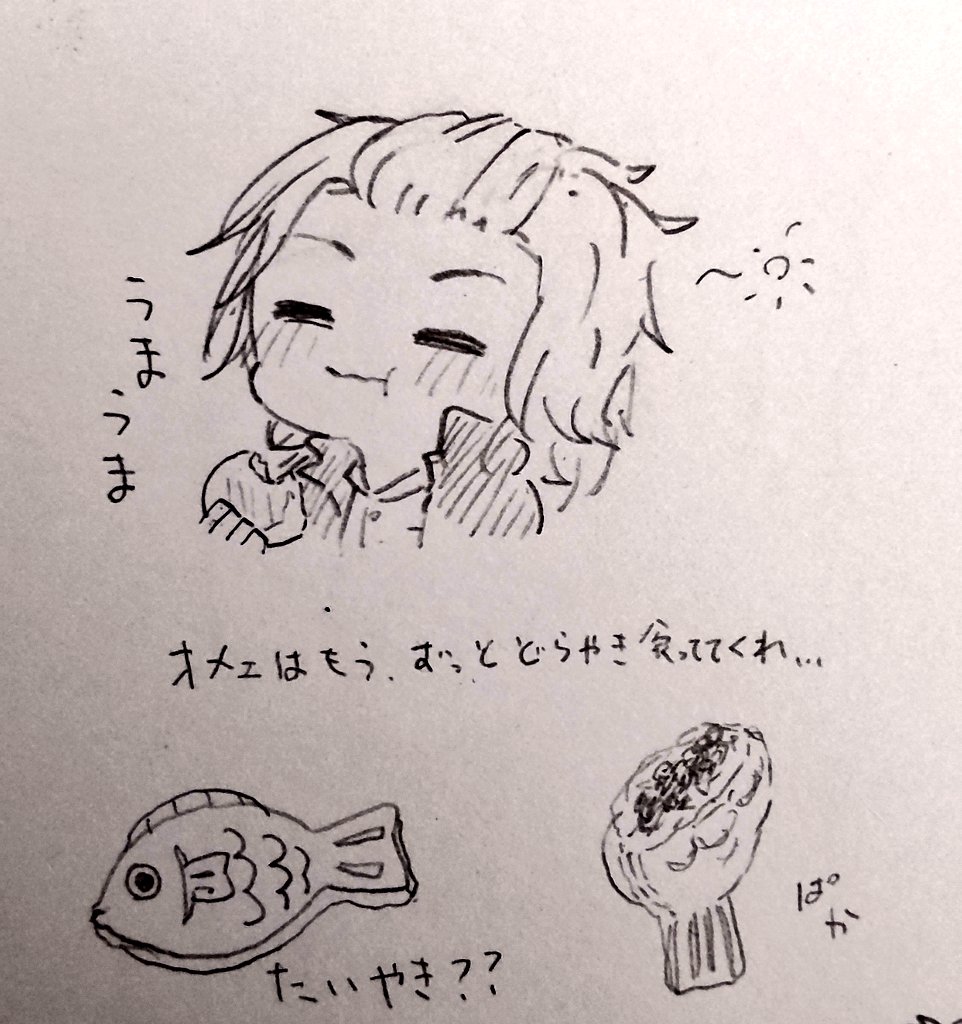 うまうま
オメェはもう、ずっとどらやき食っててくれ...
たいやき??
ぱか